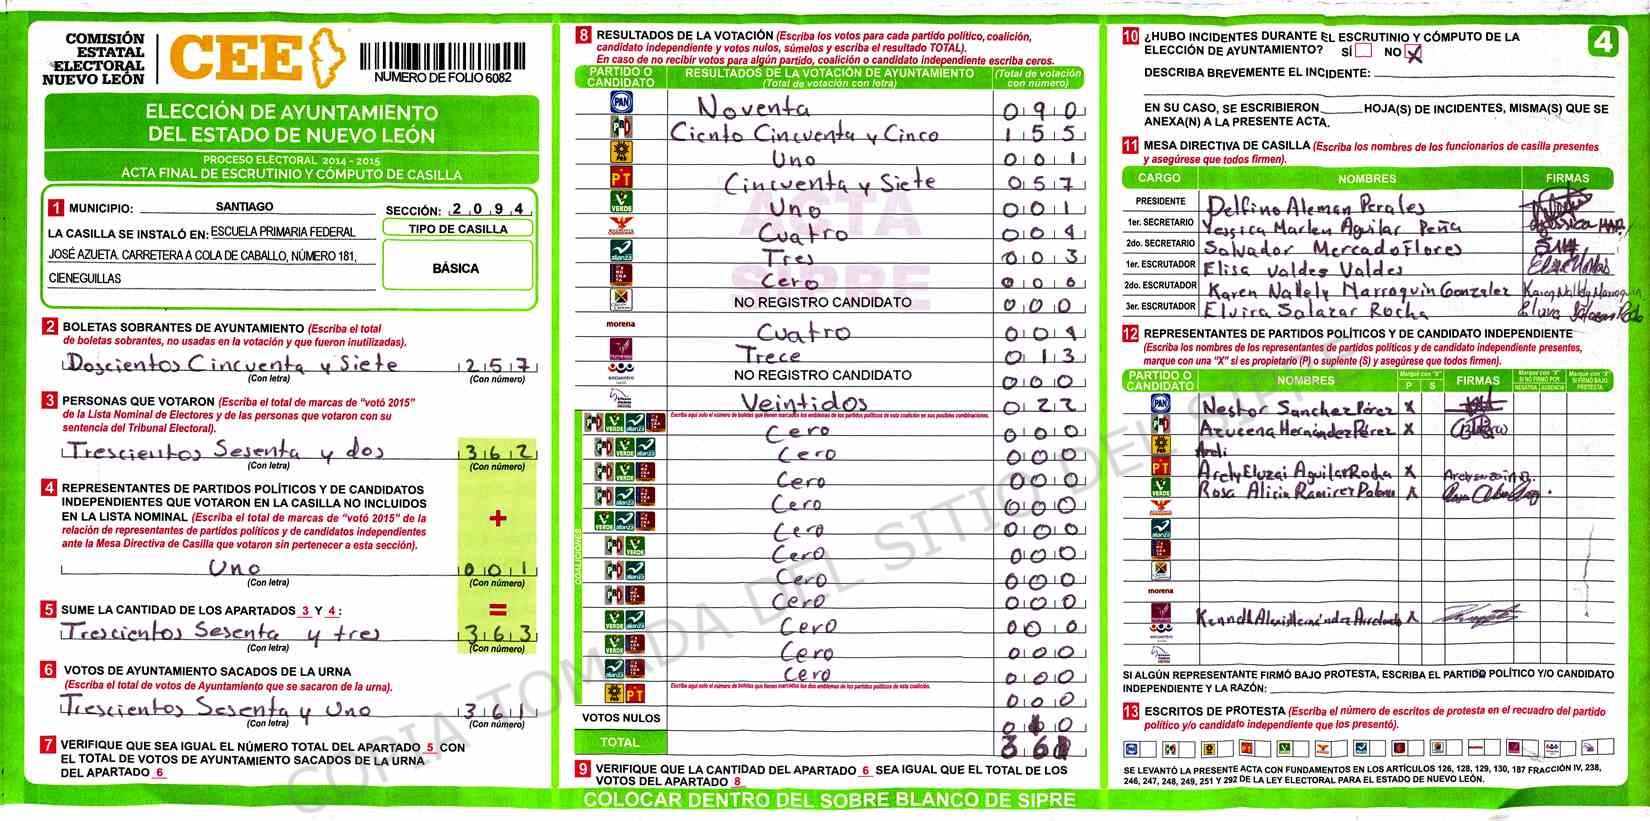 COMISIÓN
ESTATAL
ELECTORAL
NUEVO LEÓN
CEE
NUMERO DE FOLIO 6082
ELECCIÓN DE AYUNTAMIENTO
DEL ESTADO DE NUEVO LEÓN
PROCESO ELECTORAL 2014 - 2015
ACTA FINAL DE ESCRUTINIO Y CÓMPUTO DE CASILLA
1 MUNICIPIO: SANTIAGO SECCIÓN: 2 0 9 4
LA CASILLA SE INSTALÓ EN: ESCUELA PRIMARIA FEDERAL
JOSÉ AZUETA. CARRETERA A COLA DE CABALLO, NÚMERO 181,
CIENEGUILLAS
TIPO DE CASILLA
BÁSICA
2 BOLETAS SOBRANTES DE AYUNTAMIENTO (Escriba el total
de boletas sobrantes, no usadas en la votación y que fueron inutilizadas).
Doscientos Cincuenta y Siete 2 5 7
(Con letra) (Con número)
3 PERSONAS QUE VOTARON (Escriba el total de marcas de "votó 2015"
de la Lista Nominal de Electores y de las personas que votaron con su
sentencia del Tribunal Electoral).
Trescientos Sesenta y dos 3 6 2
(Con letra) (Con número)
4 REPRESENTANTES DE PARTIDOS POLÍTICOS Y DE CANDIDATOS
INDEPENDIENTES QUE VOTARON EN LA CASILLA NO INCLUIDOS
EN LA LISTA NOMINAL (Escriba el total de marcas de "votó 2015" de la
relación de representantes de partidos políticos y de candidatos independientes
ante la Mesa Directiva de Casilla que votaron sin pertenecer a esta sección).
+
Uno 0 0 1
(Con letra) (Con número)
5 SUME LA CANTIDAD DE LOS APARTADOS 3 Y 4 : =
Trescientos Sesenta y tres 3 6 3
(Con letra) (Con número)
6 VOTOS DE AYUNTAMIENTO SACADOS DE LA URNA
(Escriba el total de votos de Ayuntamiento que se sacaron de la urna).
Trescientos Sesenta y Uno 3 6 1
(Con letra) (Con número)
7 VERIFIQUE QUE SEA IGUAL EL NÚMERO TOTAL DEL APARTADO 5 CON
EL TOTAL DE VOTOS DE AYUNTAMIENTO SACADOS DE LA URNA
DEL APARTADO 6
8 RESULTADOS DE LA VOTACIÓN (Escriba los votos para cada partido político, coalición,
candidato independiente y votos nulos, súmelos y escriba el resultado TOTAL).
En caso de no recibir votos para algún partido, coalición o candidato independiente escriba ceros.
PARTIDO O CANDIDATO RESULTADOS DE LA VOTACIÓN DE AYUNTAMIENTO (Total de votación con letra) (Total de votación con número)
PAN Noventa 0 9 0
PRD Ciento Cincuenta y Cinco 1 5 5
PRD Uno 0 0 1
PT Cincuenta y Siete 0 5 7
VERDE Uno 0 0 1
Cuatro 0 0 4
alianza Tres 0 0 3
Cero 0 0 0
NO REGISTRO CANDIDATO 0 0 0
morena Cuatro 0 0 4
Trece 0 1 3
encuentro NO REGISTRO CANDIDATO 0 0 0
Veintidos 0 2 2
ACTA
SIPRE
Escriba aquí solo el número de boletas que tienen marcados los emblemas de los partidos políticos de esta coalición en sus posibles combinaciones.
COALICIONES
Cero 0 0 0
Cero 0 0 0
Cero 0 0 0
Cero 0 0 0
Cero 0 0 0
Cero 0 0 0
Cero 0 0 0
Cero 0 0 0
Cero 0 0 0
Cero 0 0 0
Cero 0 0 0
Escriba aquí solo el número de boletas que tienen marcados los dos emblemas de los partidos políticos de esta coalición.
PRD PT 0 0 0
VOTOS NULOS
TOTAL 3 6 1
9 VERIFIQUE QUE LA CANTIDAD DEL APARTADO 6 SEA IGUAL QUE EL TOTAL DE LOS
VOTOS DEL APARTADO 8
COLOCAR DENTRO DEL SOBRE BLANCO DE SIPRE
10 ¿HUBO INCIDENTES DURANTE EL ESCRUTINIO Y CÓMPUTO DE LA
ELECCIÓN DE AYUNTAMIENTO? SÍ NO X
4
DESCRIBA BREVEMENTE EL INCIDENTE:
EN SU CASO, SE ESCRIBIERON HOJA(S) DE INCIDENTES, MISMA(S) QUE SE
ANEXA(N) A LA PRESENTE ACTA.
11 MESA DIRECTIVA DE CASILLA (Escriba los nombres de los funcionarios de casilla presentes
y asegúrese que todos firmen).
CARGO NOMBRES FIRMAS
PRESIDENTE Delfino Aleman Perales
1er. SECRETARIO Yessica Marlen Aguilar Peña
2do. SECRETARIO Salvador Mercado Flores
1er. ESCRUTADOR Elisa Valdes Valdes
2do. ESCRUTADOR Karen Nallely Marroquin Gonzalez Karen Nallely Marroquin
3er. ESCRUTADOR Elvira Salazar Rocha
12 REPRESENTANTES DE PARTIDOS POLÍTICOS Y DE CANDIDATO INDEPENDIENTE
(Escriba los nombres de los representantes de partidos políticos y de candidato independiente presentes,
marque con una "X" si es propietario (P) o suplente (S) y asegúrese que todos firmen).
PARTIDO O CANDIDATO NOMBRES Marque con "X" P S FIRMAS Marque con "X" SI NO FIRMÓ POR NEGATIVA AUSENCIA Marque con "X" SI FIRMÓ BAJO PROTESTA
PAN Nestor Sanchez Pérez X
Azucena Hernández Pérez X
PRD Areli
PT Arely Eluzai Aguilar Rocha X
VERDE Rosa Alicia Ramirez X
morena
X
encuentro
SI ALGÚN REPRESENTANTE FIRMÓ BAJO PROTESTA, ESCRIBA EL PARTIDO POLÍTICO Y/O CANDIDATO
INDEPENDIENTE Y LA RAZÓN:
13 ESCRITOS DE PROTESTA (Escriba el número de escritos de protesta en el recuadro del partido
político y/o candidato independiente que los presentó).
SE LEVANTÓ LA PRESENTE ACTA CON FUNDAMENTOS EN LOS ARTÍCULOS 126, 128, 129, 130, 187 FRACCIÓN IV, 238,
246, 247, 248, 249, 251 Y 292 DE LA LEY ELECTORAL PARA EL ESTADO DE NUEVO LEÓN.
COPIA TOMADA DEL SITIO DEL SIPRE